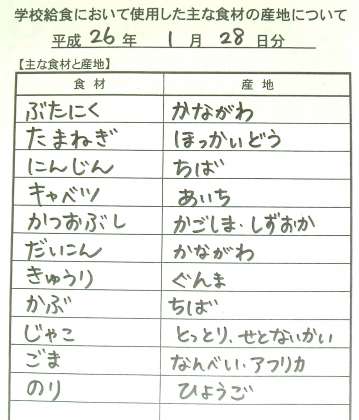 学校給食において使用した主な食材の産地について
平成 26 年 1 月 28 日分
【主な食材と産地】
食材 産地
ぶたにく かながわ
たまねぎ ほっかいどう
にんじん ちば
キャベツ あいち
かつおぶし かごしま・しずおか
だいこん かながわ
きゅうり ぐんま
かぶ ちば
じゃこ とっとり、せとないかい
ごま なんべい・アフリカ
のり ひょうご